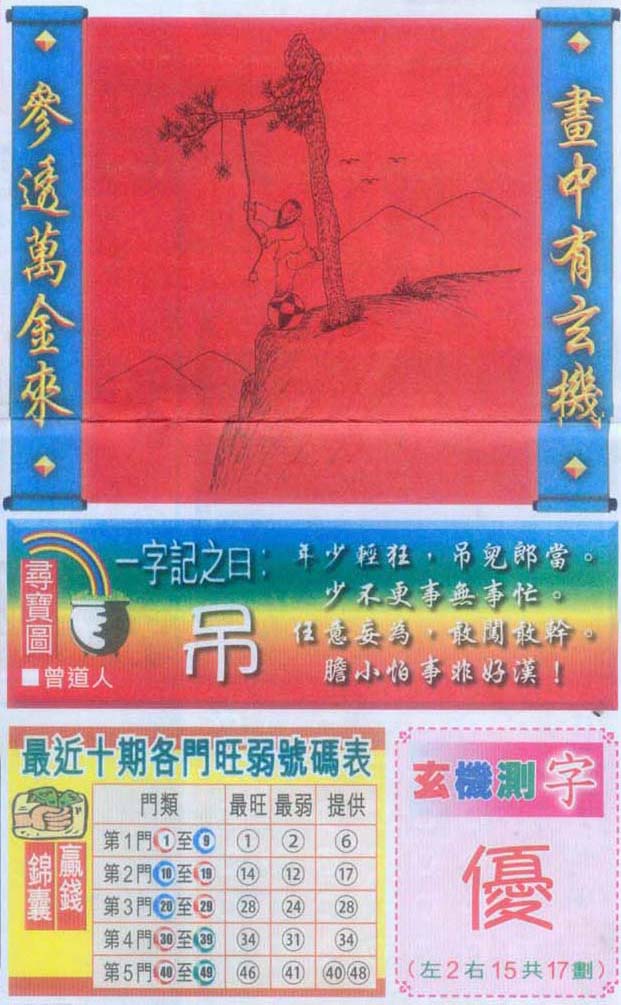 畫中有玄機
參透萬金來
尋寶圖
■曾道人
一字記之曰：
吊
年少輕狂，吊兒郎當。
少不更事無事忙。
任意妄為，敢闖敢幹。
膽小怕事非好漢！
最近十期各門旺弱號碼表
贏錢
錦囊
門類 最旺 最弱 提供
第1門 1 至 9 ① ② ⑥
第2門 10 至 19 ⑭ ⑫ ⑰
第3門 20 至 29 ㉘ ㉔ ㉘
第4門 30 至 39 ㉞ ㉛ ㉞
第5門 40 至 49 ㊻ ㊶ ㊵ ㊽
玄機測字
優
（左2右15共17劃）